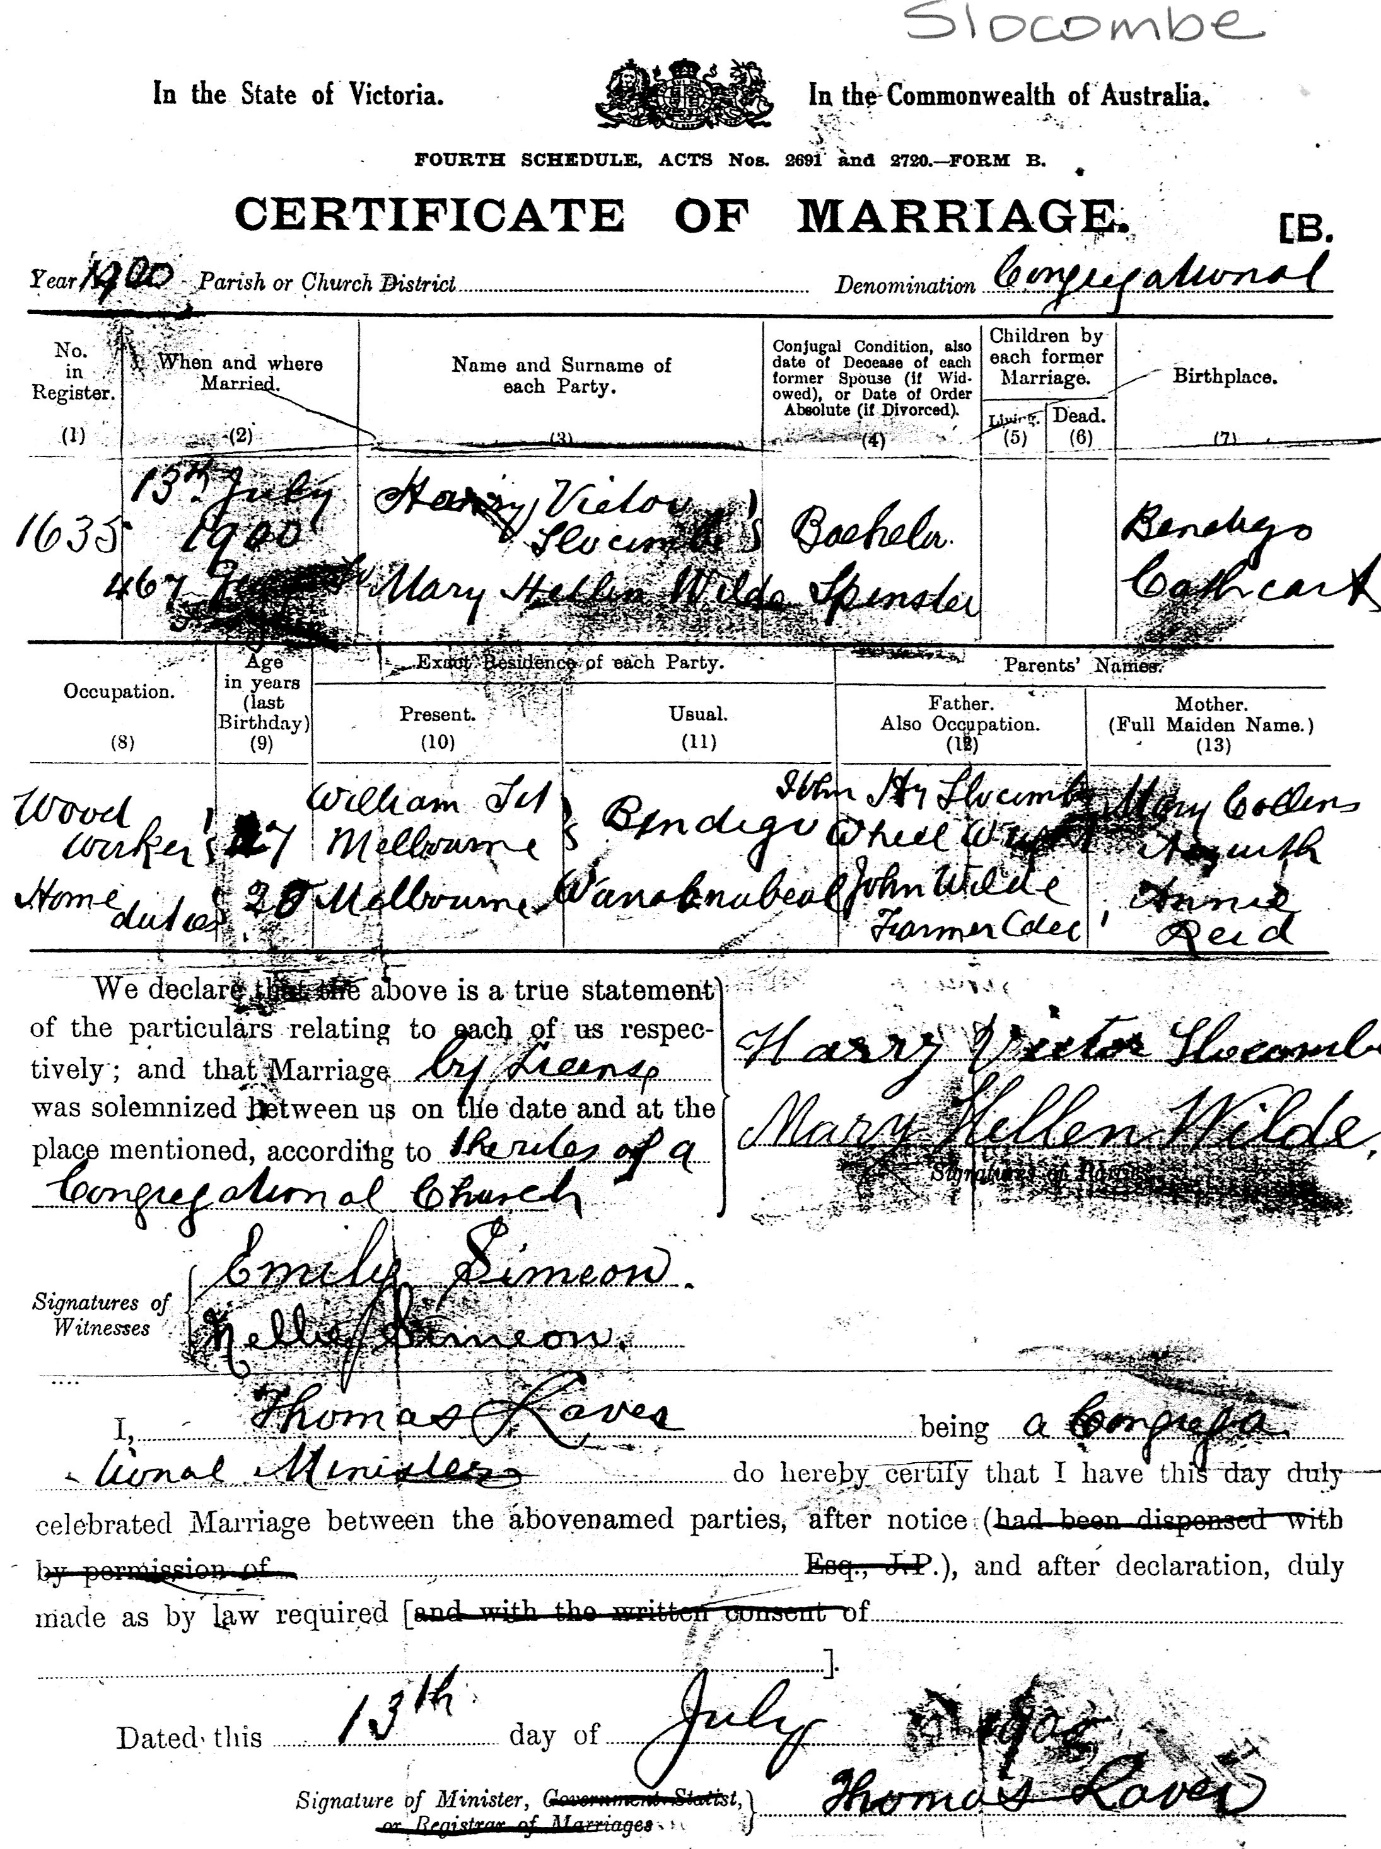 Slocombe
In the State of Victoria. In the Commonwealth of Australia.
FOURTH SCHEDULE, ACTS Nos. 2691 and 2720.—FORM B.
CERTIFICATE OF MARRIAGE. [B.
Year Parish or Church District Denomination Congregational
No. in Register. (1)
When and where Married. (2)
Name and Surname of each Party. (3)
Conjugal Condition, also date of Decease of each former Spouse (if Widowed), or Date of Order Absolute (if Divorced). (4)
Children by each former Marriage.
Living. (5) Dead. (6)
Birthplace. (7)
13th July Harry Victor
1635 Slocombe Bachelor. Bendigo
467 Mary Hellen Wilde Spinster Cathcart
Occupation. (8)
Age in years (last Birthday) (9)
Exact Residence of each Party.
Present. (10) Usual. (11)
Parents' Names.
Father. Also Occupation. (12)
Mother. (Full Maiden Name.) (13)
Wood William St John Hy Slocombe Mary Collens
worker 27 Melbourne Bendigo Wheel
Home John Wilde Annie
duties 28 Melbourne Farmer Reid
We declare that the above is a true statement
of the particulars relating to each of us respec-
tively; and that Marriage by License Harry Victor Slocombe
was solemnized between us on the date and at the
place mentioned, according to the rites of a Mary Hellen Wilde.
Congregational Church Signatures of Parties
Signatures of Witnesses
Emily Simeon.
Nellie Simeon.
I, Thomas being a Congrega
tional Minister do hereby certify that I have this day duly
celebrated Marriage between the abovenamed parties, after notice (had been dispensed with
by permission of Esq., J.P.), and after declaration, duly
made as by law required [and with the written consent of
].
Dated this 13th day of July
Signature of Minister, Government Statist,
or Registrar of Marriages
Thomas